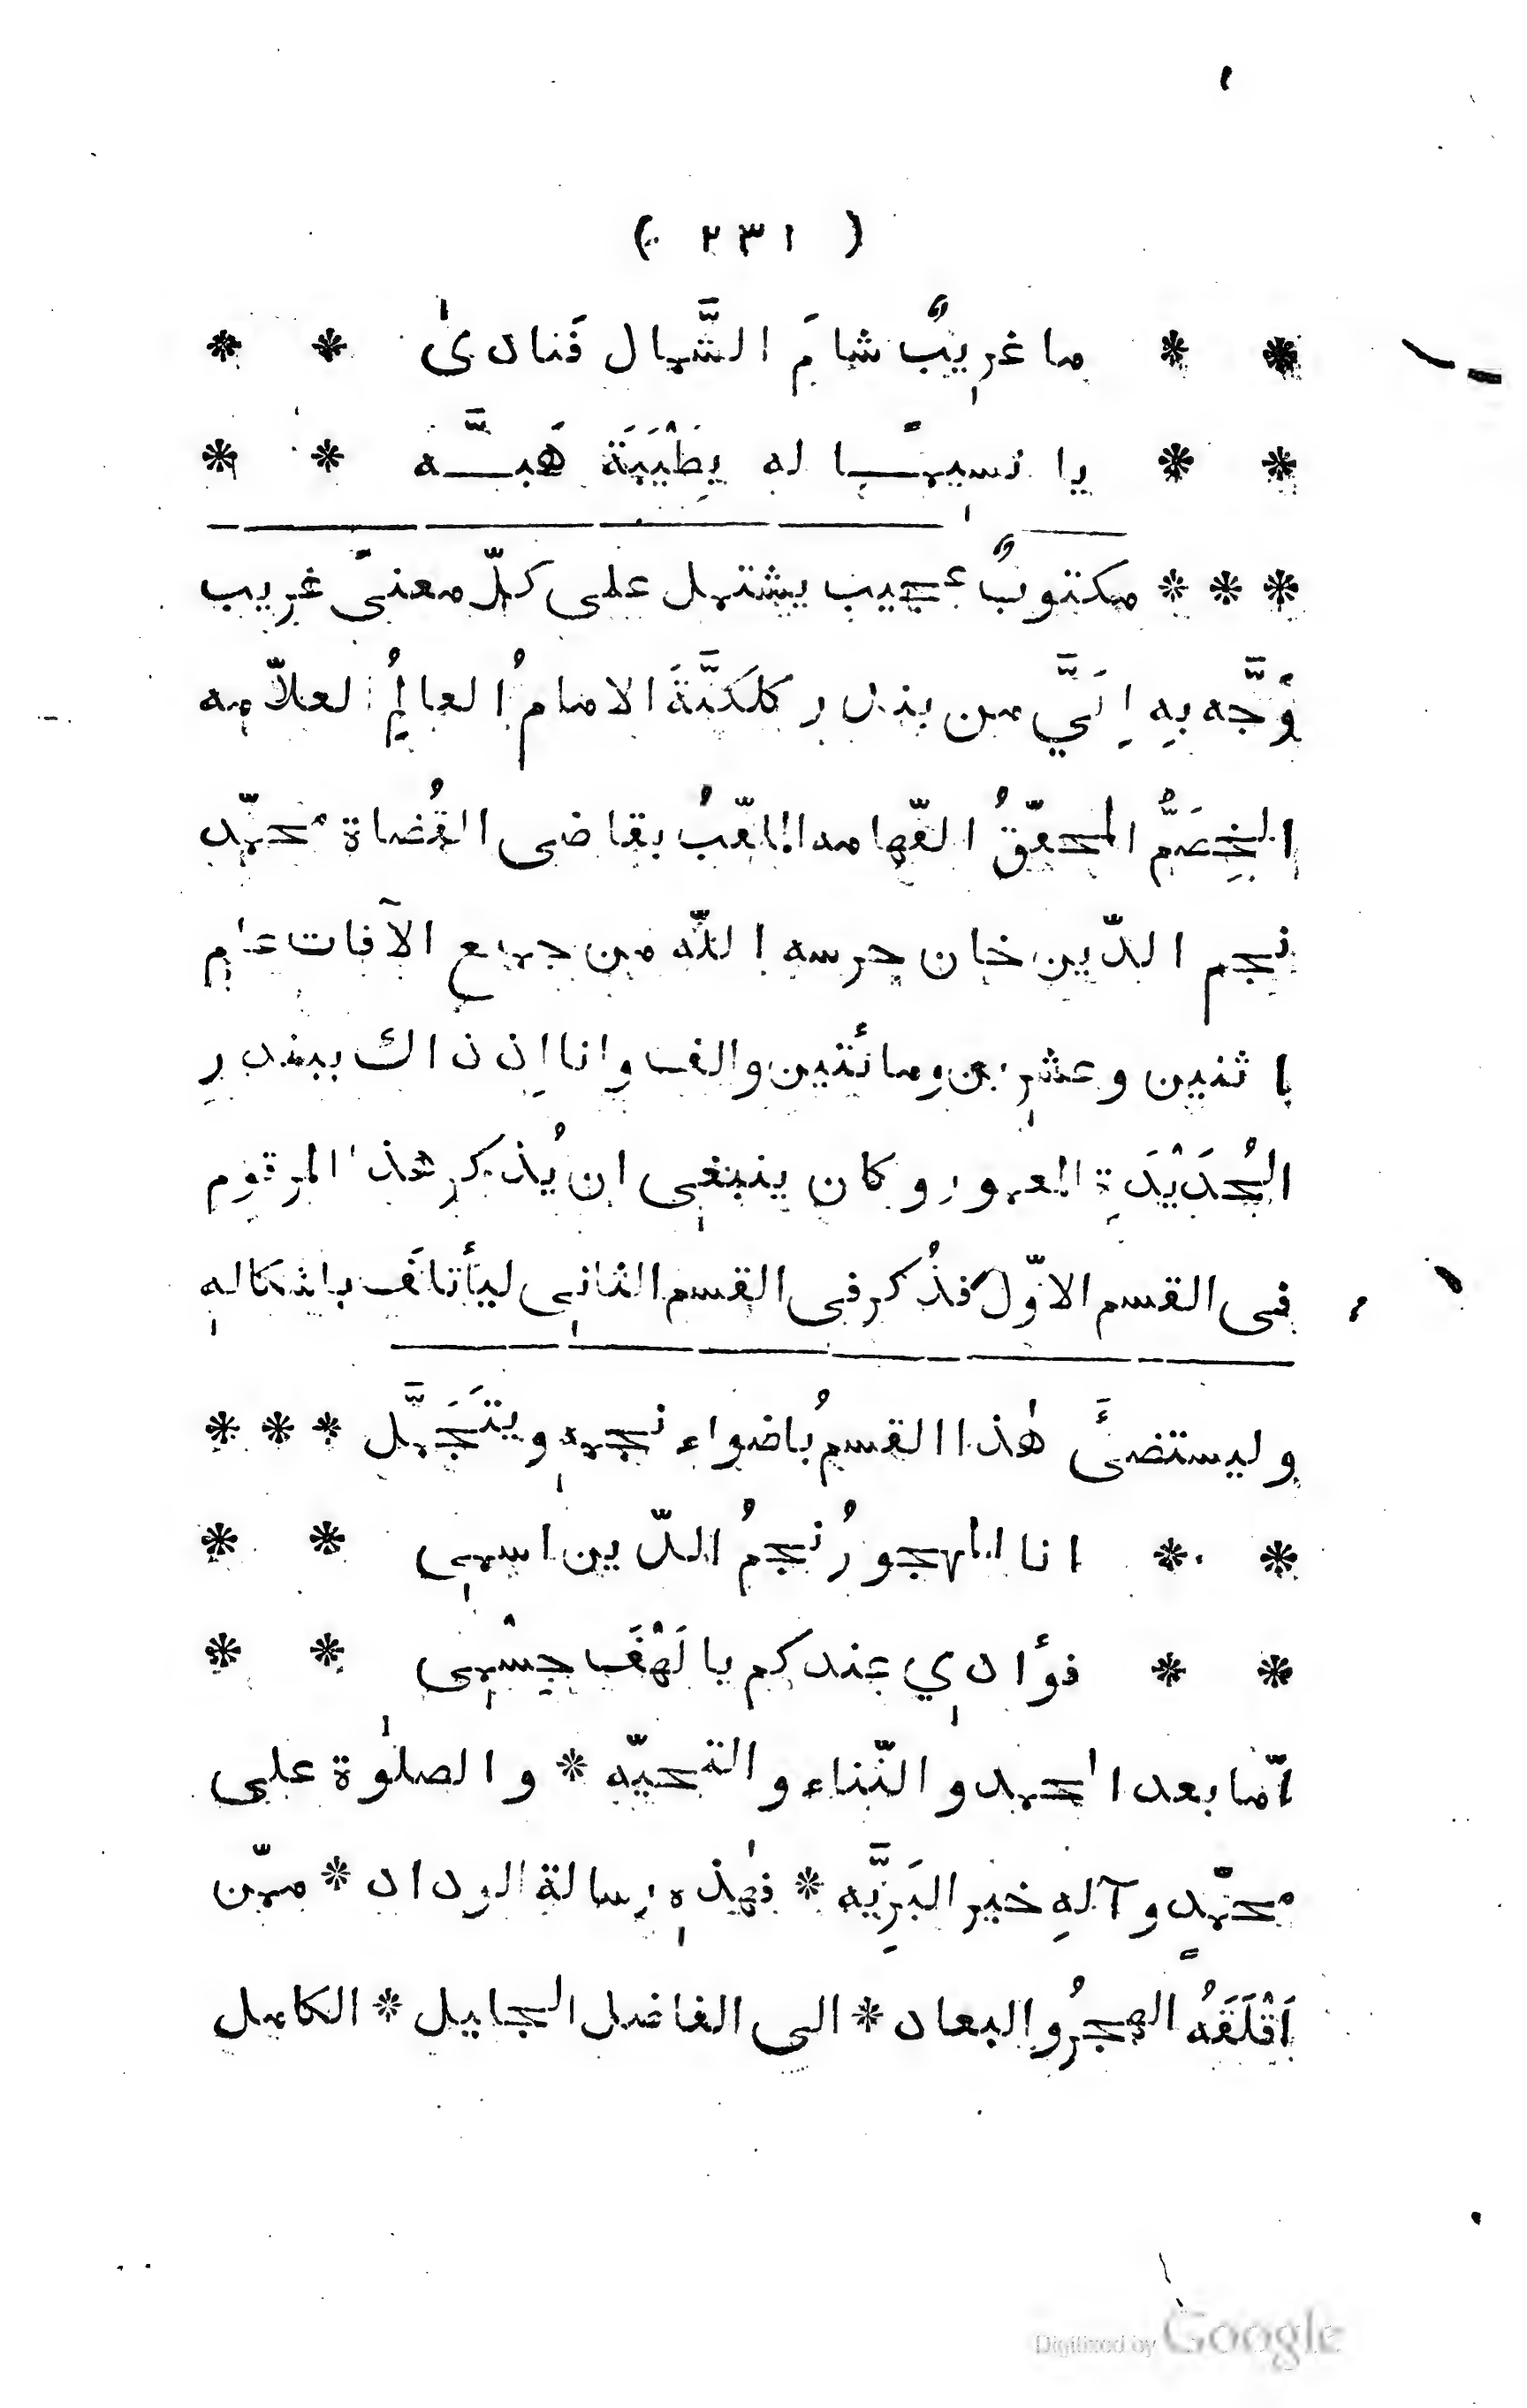 ( ٢٣١ )
* * ما غرِيبٌ شامَ الشَّمال فَنادىٰ * *
* * يا نسيمًا له بِطَيْبَةَ هَبَّه * *
* * * مكتوبٌ عجيب يشتمل على كلّ معنىً غريب
وَجَّه بهِ اِلَيَّ من بندر كلكتَّةَ الامامُ العالمُ العلاّمه
الخِضَمُّ المحقّقُ الفّهامه الملقّبُ بقاضى القُضاة محمّد
نجم الدّين خان حرسه اللّه من جميع الآفات عام
اثنين وعشرين ومائتين والف وانا اِذ ذاك ببندر
الحُدَيْدَةِ المعمور وكان ينبغى ان يُذكر هذا المرقوم
فى القسم الاوّل فذُكر فى القسم الثانى ليأتلفَ باشكاله
وليستضئَ هٰذا القسمُ باضواء نجمه ويتَجَمَّل * * *
* * انا المهجورُ نجمُ الدّين اسمى * *
* * فؤادي عندكم يا لَهْفَ جِسْمِى * *
امّا بعد الحمد والثّناء والتحيّه * والصلٰوة على
محمّدٍ وآلهِ خير البَرِيَّه * فهٰذه رسالة الوداد * ممّن
اَقْلَقَهُ الهجرُ والبعاد * الى الفاضل الجليل * الكامل
Digitized by Google